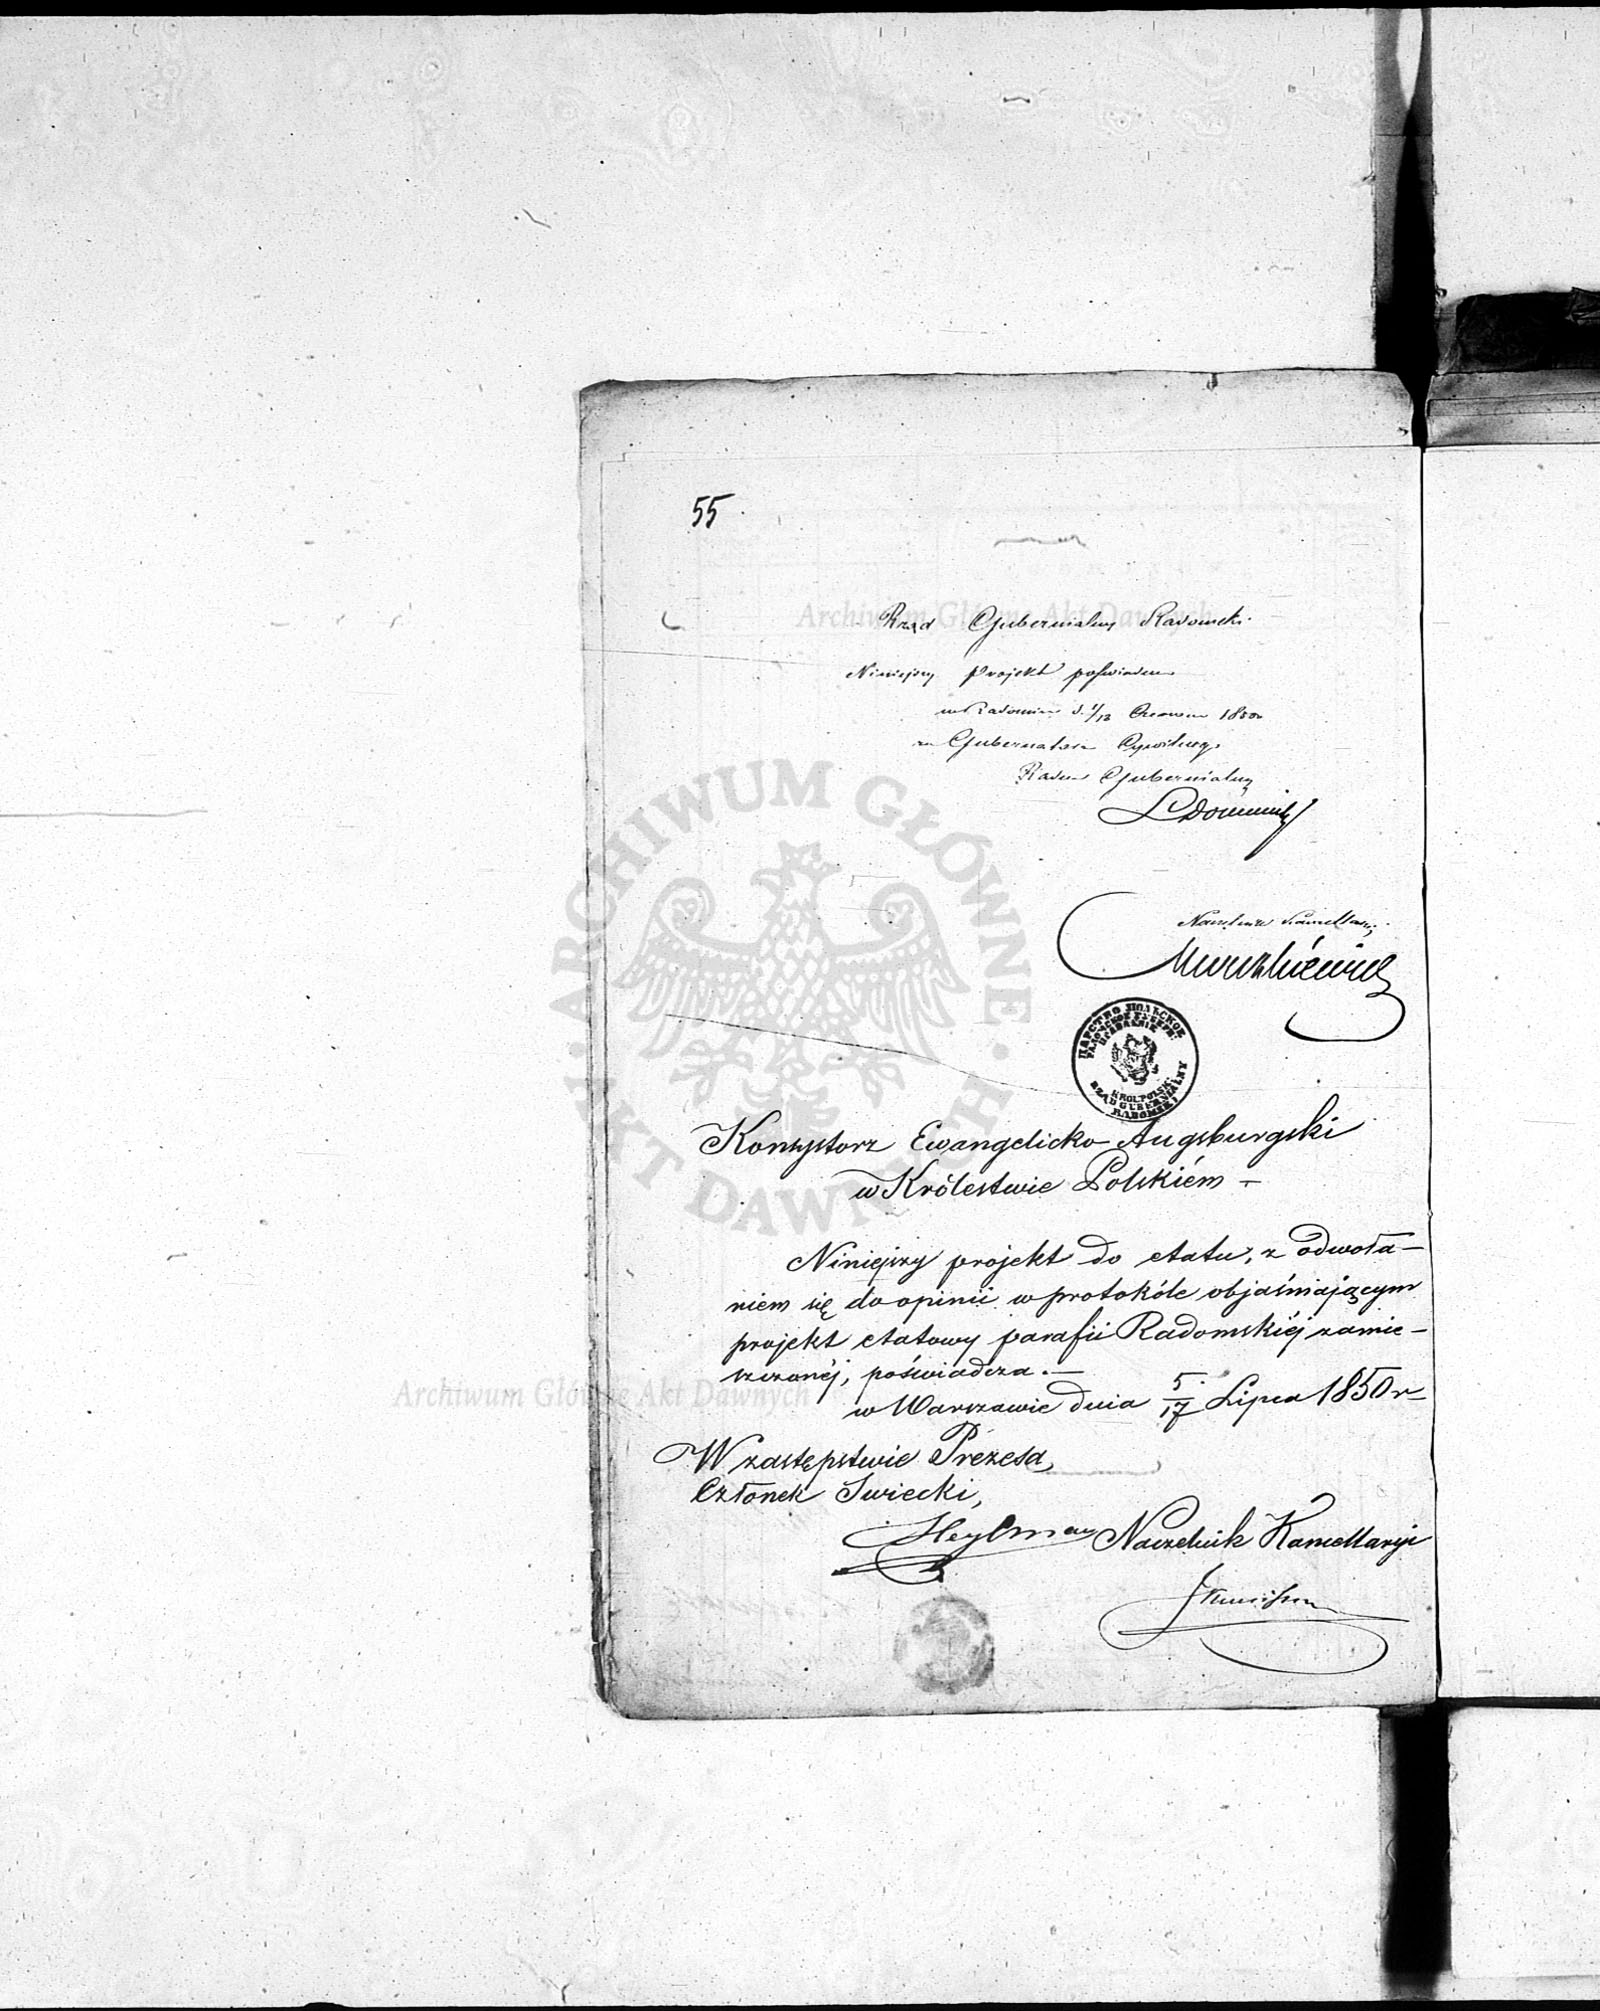 55
Rząd Gubernialny Radomski
Niniejszy projekt poświadcza
w Radomiu d. 1/13 Czerwca 1850 r
za Gubernatora Cywilnego
Radca Gubernialny
Naczelnik Kancellaryi
ЦАРСТВО ПОЛЬСКОЕ
KROL: POLSK:
RZĄD GUBERNIALNY
RADOMSKI
Konsystorz Ewangelicko-Augsburgski
w Królestwie Polskiém —
Niniejszy projekt do etatu, z odwoła-
niem się do opinii w protokóle objaśniającym
projekt etatowy parafii Radomskiéj zamie-
szczonéj, poświadcza. —
w Warszawie dnia 5/17 Lipca 1850 r
W zastępstwie Prezesa,
Członek Swiecki,
Heylman Naczelnik Kancellaryi
ARCHIWUM GŁÓWNE AKT DAWNYCH
Archiwum Główne Akt Dawnych
Archiwum Główne Akt Dawnych